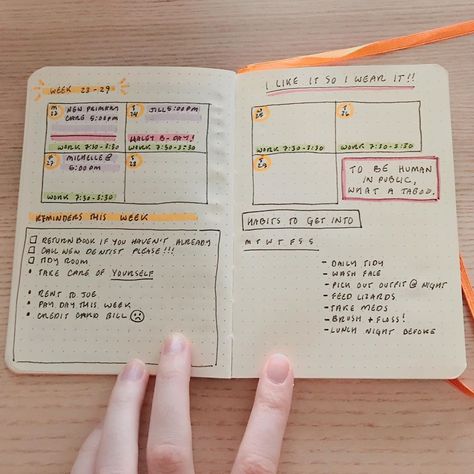 WEEK 23-29
M 23 NEW PRIMARY CARE 5:00PM
WORK 7:30-3:30
T 24 JILL 5:00PM
HALEY B-DAY!
WORK 7:30-3:30
F 27 MICHELLE @ 5:00PM
WORK 7:30-3:30
S 28
REMINDERS THIS WEEK
RETURN BOOK IF YOU HAVEN'T ALREADY
CALL NEW DENTIST PLEASE!!!
TIDY ROOM
TAKE CARE OF YOURSELF
RENT TO JOE
PAY DAY THIS WEEK
CREDIT CARD BILL
I LIKE IT SO I WEAR IT!!
W 25
WORK 7:30-3:30
T 26
WORK 7:30-3:30
S 29
TO BE HUMAN
IN PUBLIC,
WHAT A TABOO.
HABITS TO GET INTO
M T W T F S S
- DAILY TIDY
- WASH FACE
- PICK OUT OUTFIT @ NIGHT
- FEED LIZARDS
- TAKE MEDS
- BRUSH + FLOSS!
- LUNCH NIGHT BEFORE